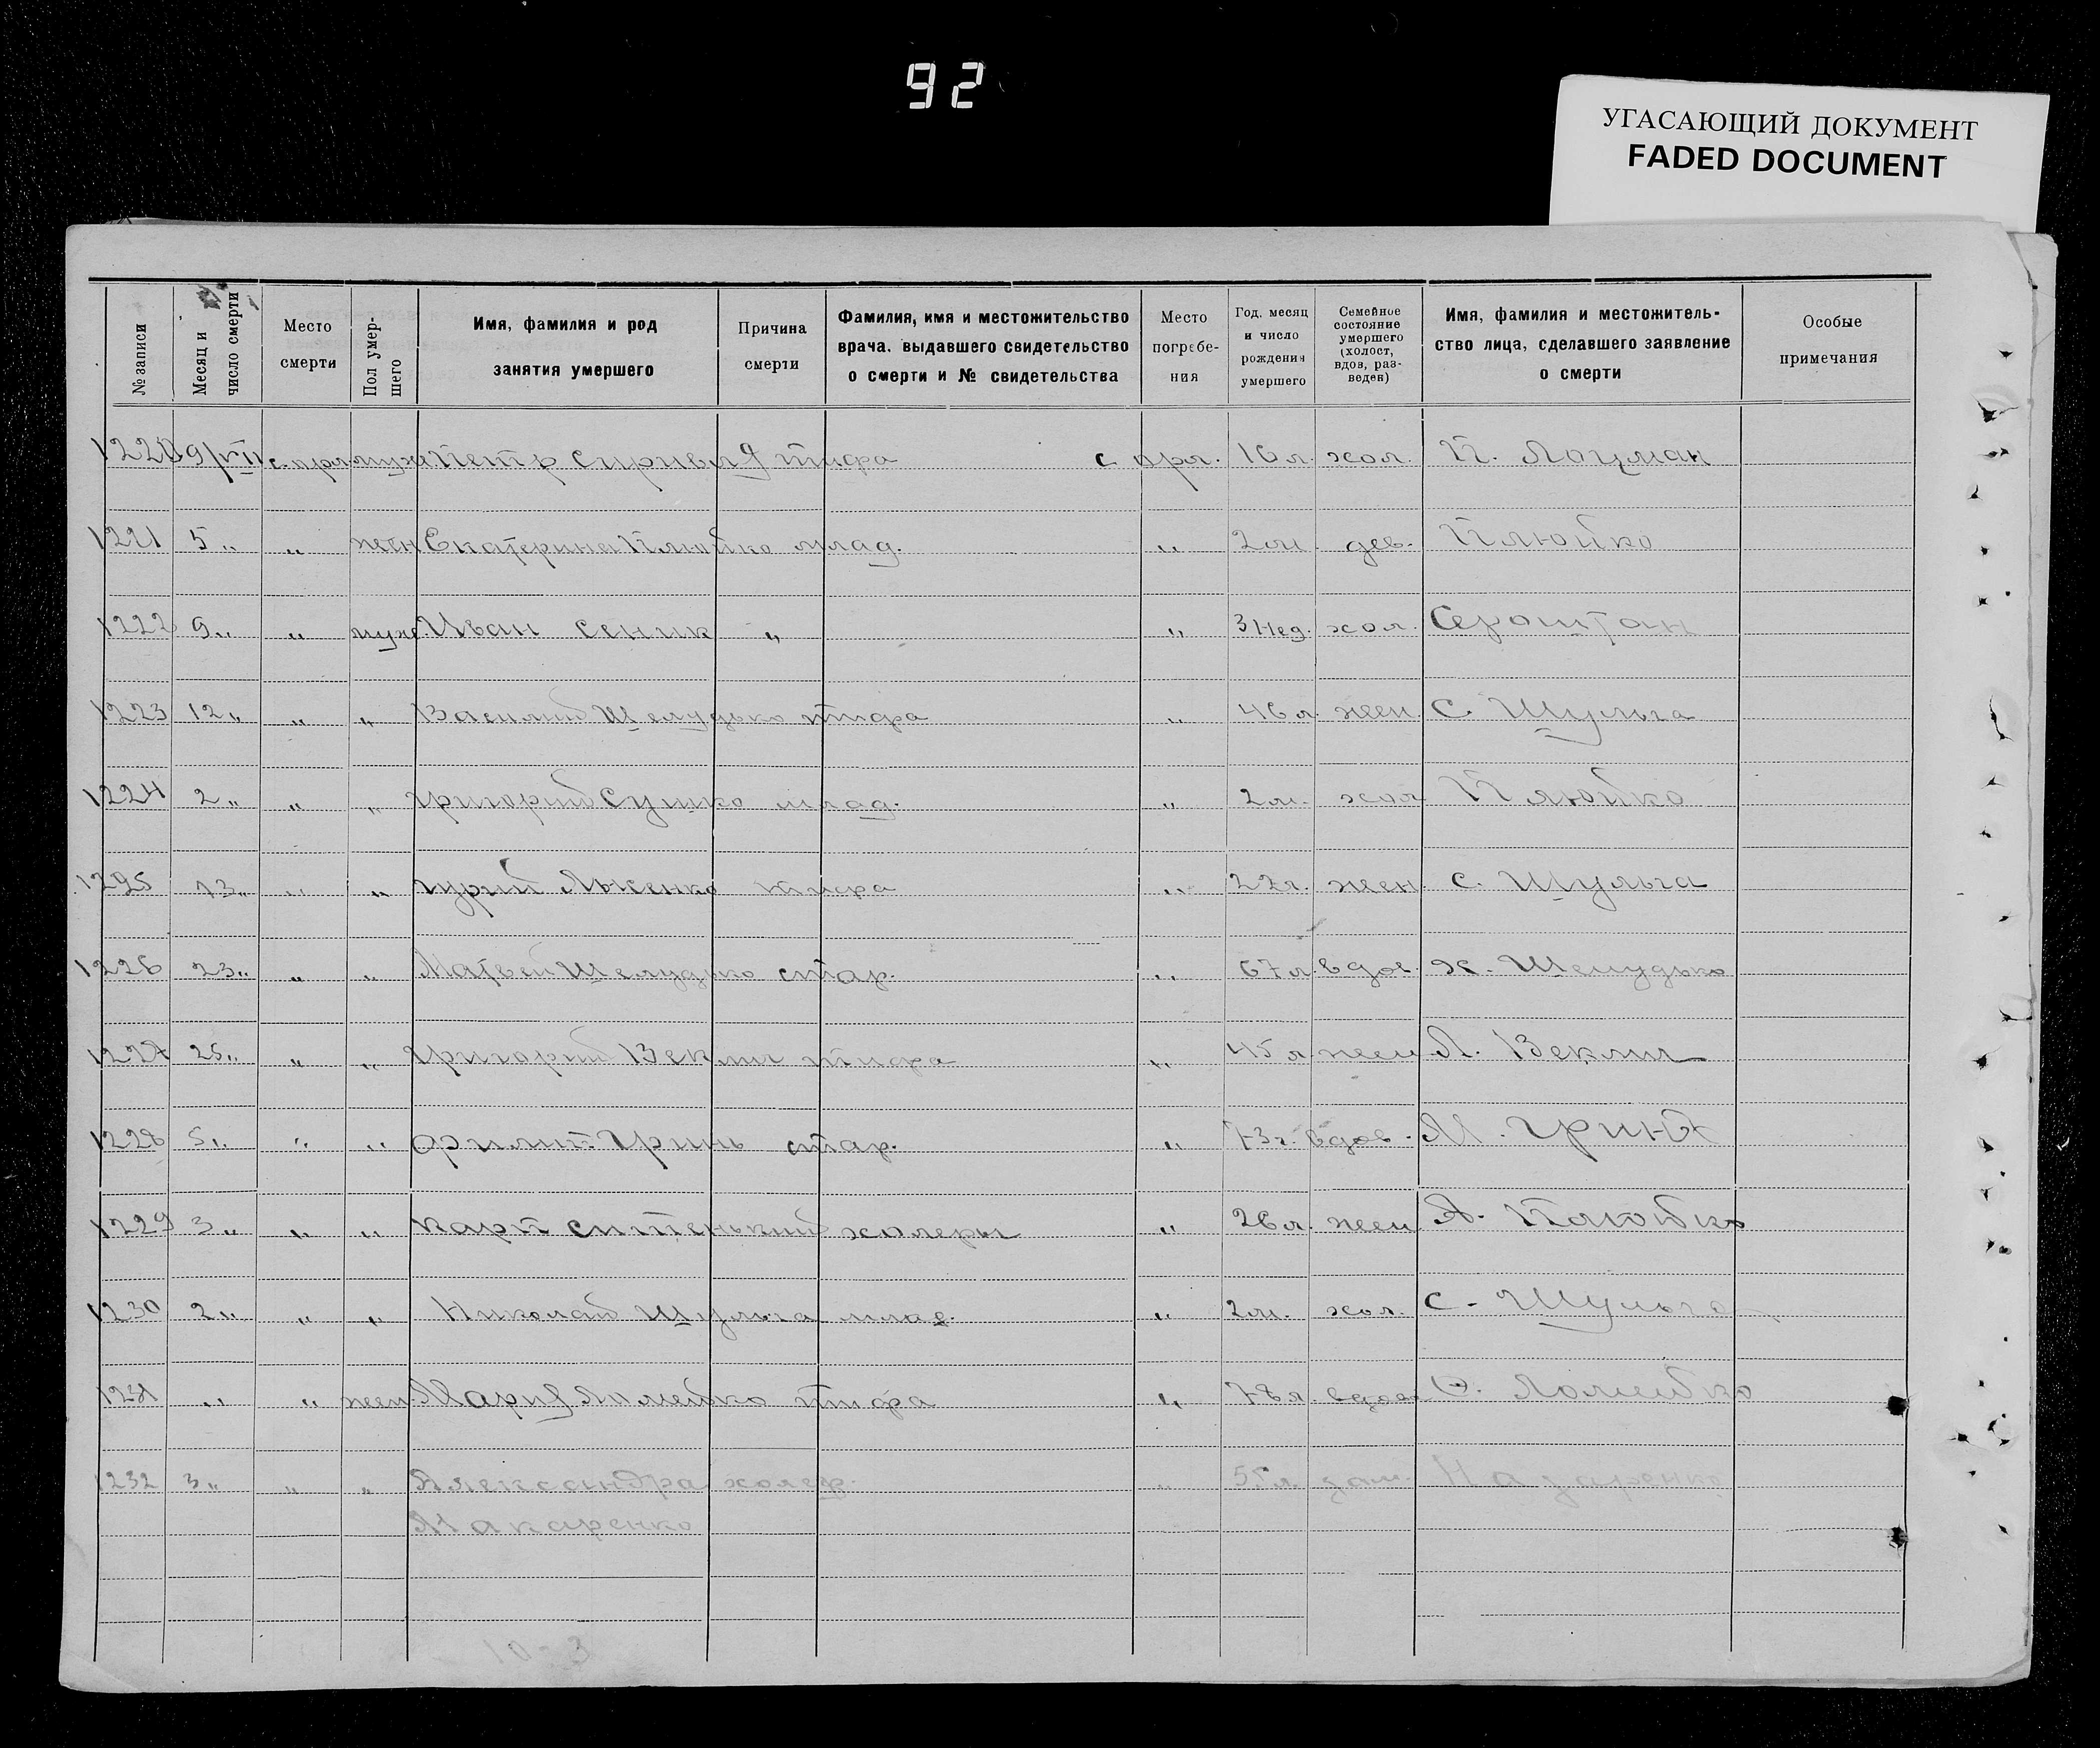 92
УГАСАЮЩИЙ ДОКУМЕНТ
FADED DOCUMENT
№ записи
Месяц и число смерти
Место смерти
Пол умершего
Имя, фамилия и род занятия умершего
Причина смерти
Фамилия, имя и местожительство врача, выдавшего свидетельство о смерти и № свидетельства
Место погребения
Год, месяц и число рождения умершего
Семейное состояние умершего (холост, вдов, разведен)
Имя, фамилия и местожительство лица, сделавшего заявление о смерти
Особые примечания
1220 9/VII муж. Петр тифа 16 л. хол. П. Лоцман
1221 5 " " жен Екатерина Плюйко млад. " 2 м. дев. Плюйко
1222 9 " " муж. Иван Сеник " " 3 нед. хол. Сероштан
1223 12 " " " Василий Шелудько тифа " 46 л. жен. С. Шульга
1224 2 " " " Григорий Сушко млад. " 2 м. хол Плюйко
1225 13 " " " Гурий Лысенко тифа " 22 г. жен. С. Шульга
1226 23 " " " Матвей Шелудько стар. " 67 л. вдов. Х. Шелудько
1227 25 " " " Григорий Веклич тифа " 45 л жен Л. Веклич
1228 5 " " " Филип Гринь стар. " 73 г. вдов. М. Гринь
1229 3 " " " Карп холеры " 26 л. жен А. Плюйко
1230 2 " " " Николай Шульга млад. " 2 м. хол. С. Шульга
1231 " " жен. Мария Ломейко тифа " 78 л. вдова Ломейко
1232 3 " " " Александра холер. " 55 л. зам. Назаренко
Макаренко
10-3